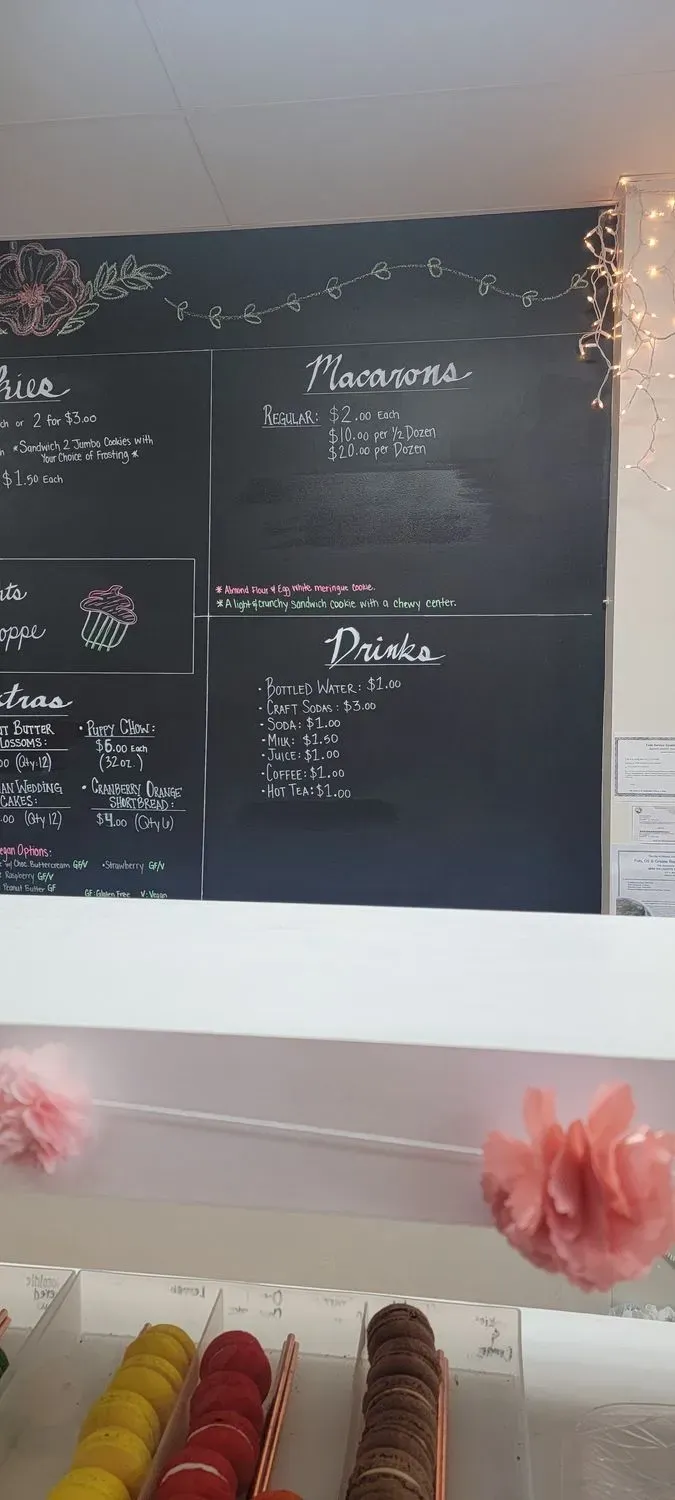 kies
ch or 2 for $3.00
*Sandwich 2 Jumbo Cookies with
Your Choice of Frosting*
$1.50 Each
Macarons
Regular: $2.00 Each
$10.00 per ½ Dozen
$20.00 per Dozen
*Almond Flour & Egg White meringue cookie.
*A light & crunchy sandwich cookie with a chewy center.
hts
oppe
Drinks
• Bottled Water: $1.00
• Craft Sodas: $3.00
• Soda: $1.00
• Milk: $1.50
• Juice: $1.00
• Coffee: $1.00
• Hot Tea: $1.00
xtras
ut Butter
lossoms:
00 (Qty:12)
an Wedding
Cakes:
.00 (Qty 12)
• Puppy Chow:
$6.00 Each
(32oz.)
• Cranberry Orange
Shortbread:
$4.00 (Qty 6)
egan Options:
w/ Choc Buttercream GF/V
Raspberry GF/V
Peanut Butter GF
• Strawberry GF/V
GF: Gluten Free V: Vegan
Lemon